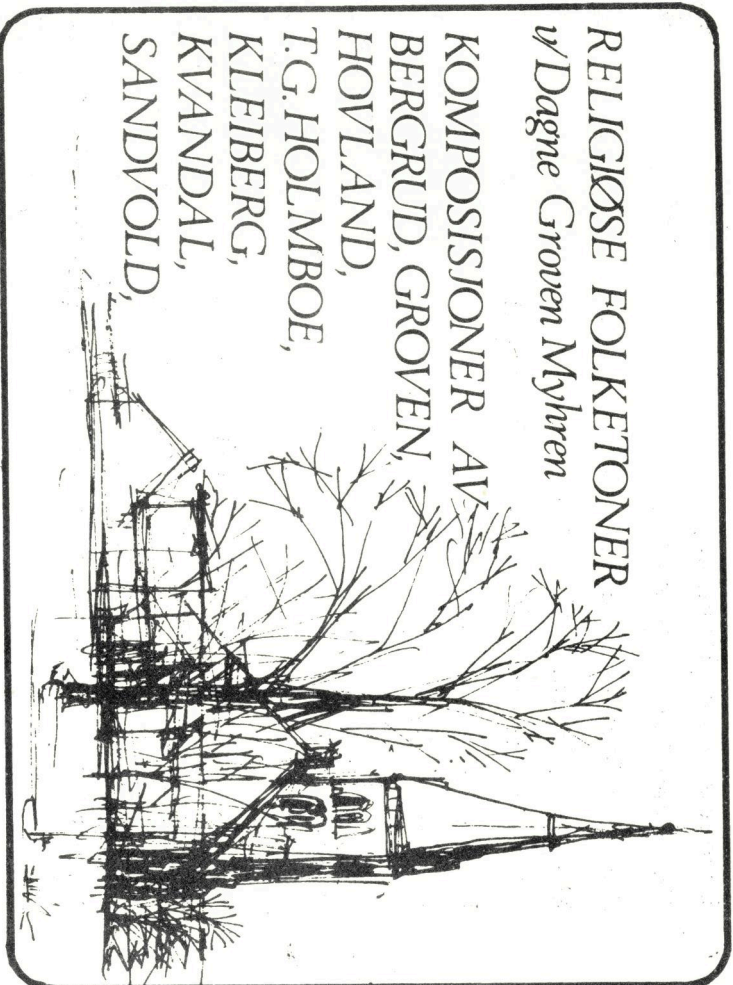 RELIGIØSE FOLKETONER
v/Dagne Groven Myhren
KOMPOSISJONER AV
BERGRUD, GROVEN,
HOVLAND,
T.G. HOLMBOE,
KLEIBERG,
KVANDAL,
SANDVOLD,